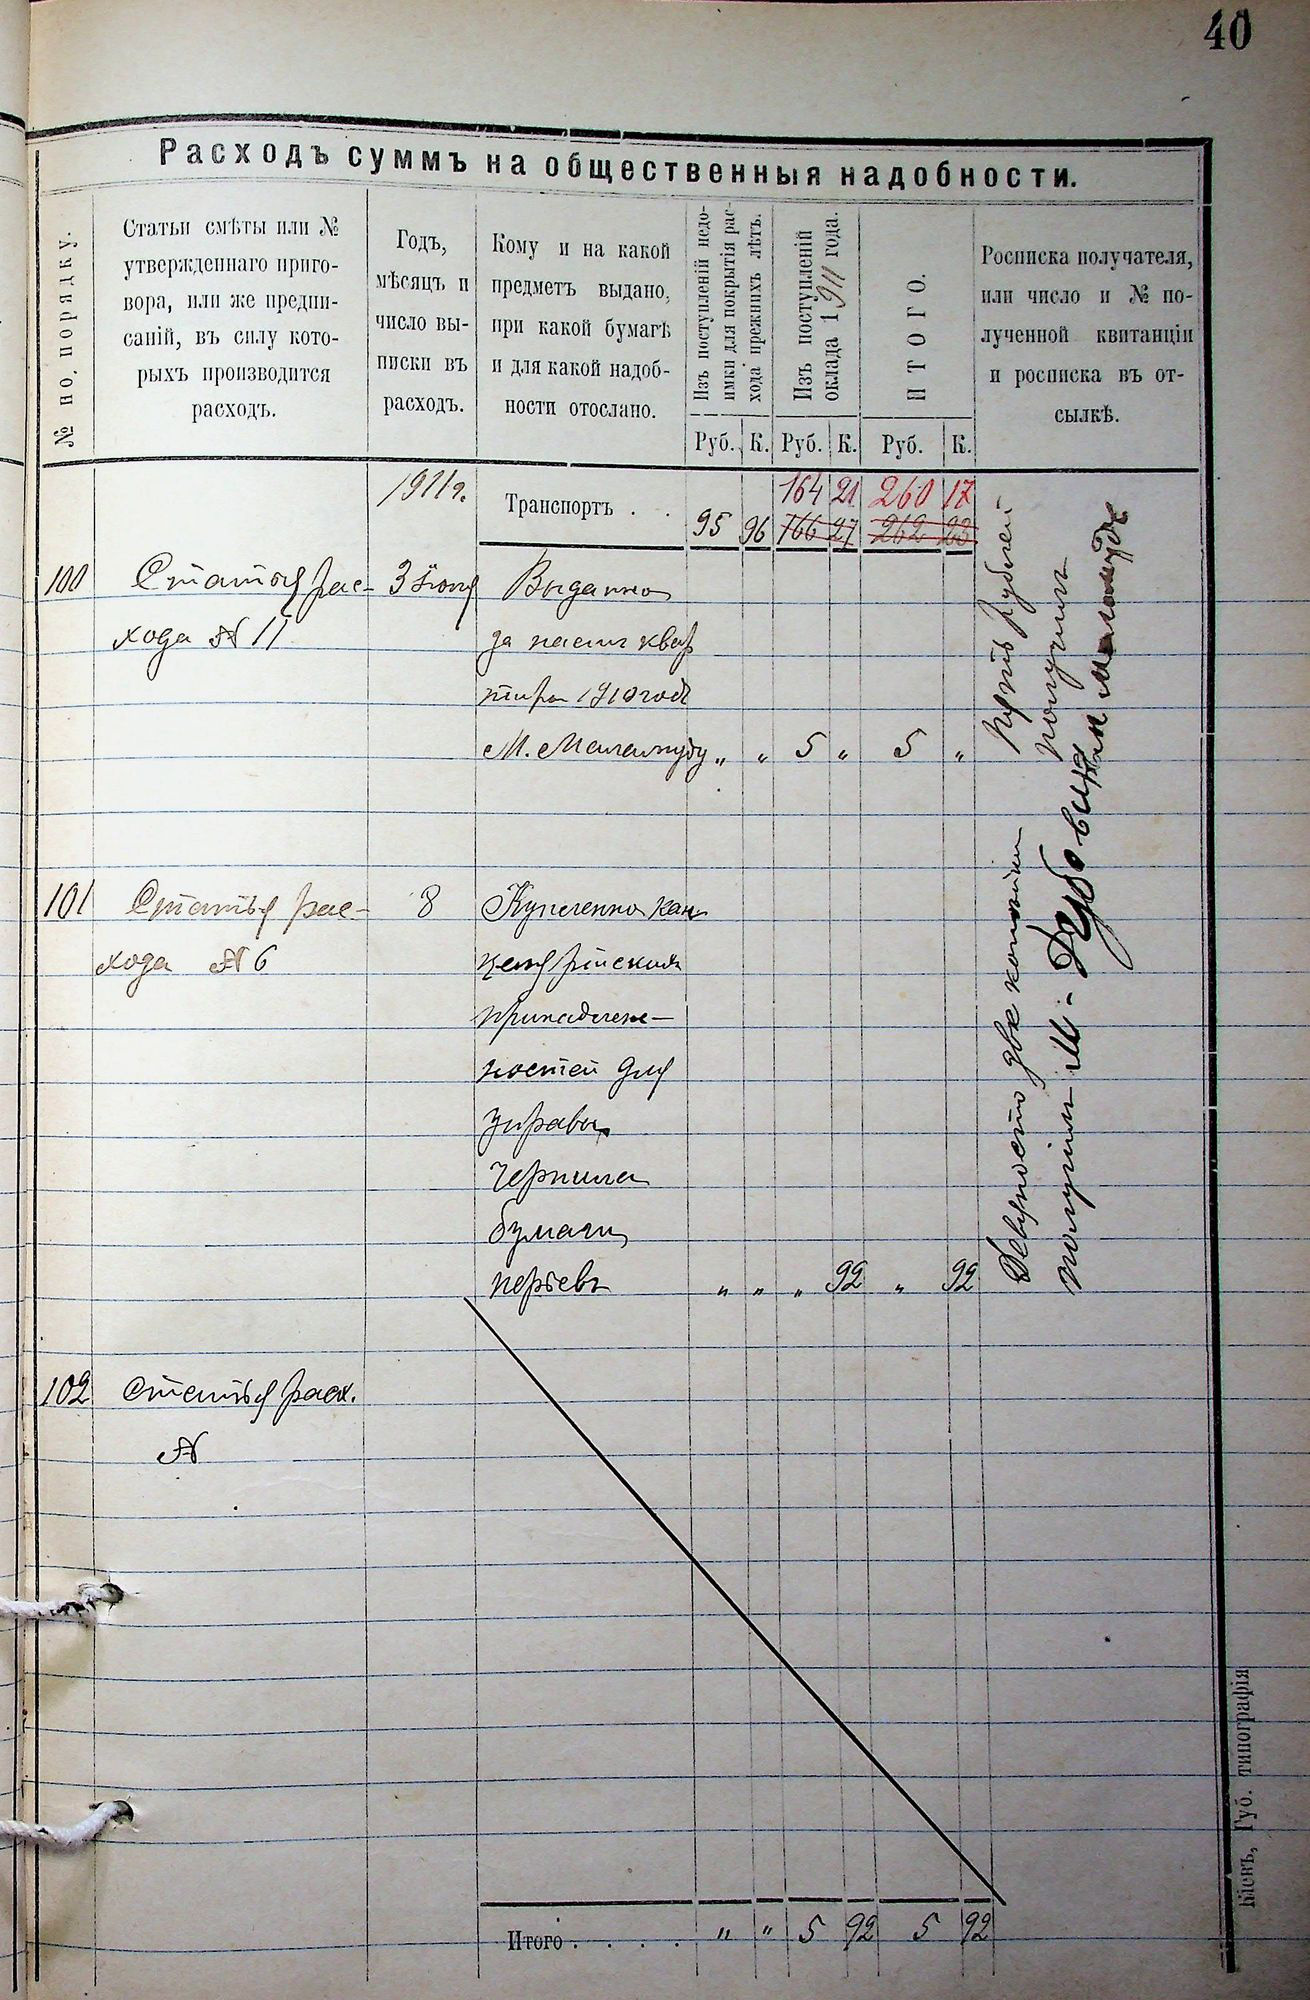 40
Расходъ суммъ на общественныя надобности.
№ по порядку.
Статьи смѣты или №
утвержденнаго приго-
вора, или же предпи-
саній, въ силу кото-
рыхъ производится
расходъ.
Годъ,
мѣсяцъ и
число вы-
писки въ
расходъ.
Кому и на какой
предметъ выдано,
при какой бумагѣ
и для какой надоб-
ности отослано.
Изъ поступленій недо-
имки для покрытія рас-
хода прежнихъ лѣтъ.
Изъ поступленій
оклада 1911 года.
ИТОГО.
Росписка получателя,
или число и № по-
лученной квитанціи
и росписка въ от-
сылкѣ.
Руб. К. Руб. К. Руб. К.
1911 г.
164 21 260 17
Транспортъ . . 95 96 166 27 262 23
100 Статья рас- 3 Іюня Выдано
хода № 11 за наемъ квар
тиры 1910 года
М. Маламуду „ „ 5 „ 5 „
Пять рублей
получилъ
101 Статья рас- 8 Куплено кан
хода № 6 целярскихъ
принадлеж-
ностей для
управы
чернила
бумаги
перьевъ „ „ „ 92 „ 92
Девяносто две копейки
получилъ М. Дубовий
102 Статья расх.
№
Итого . . . . „ „ 5 92 5 92
Кіевъ, Губ. типографія